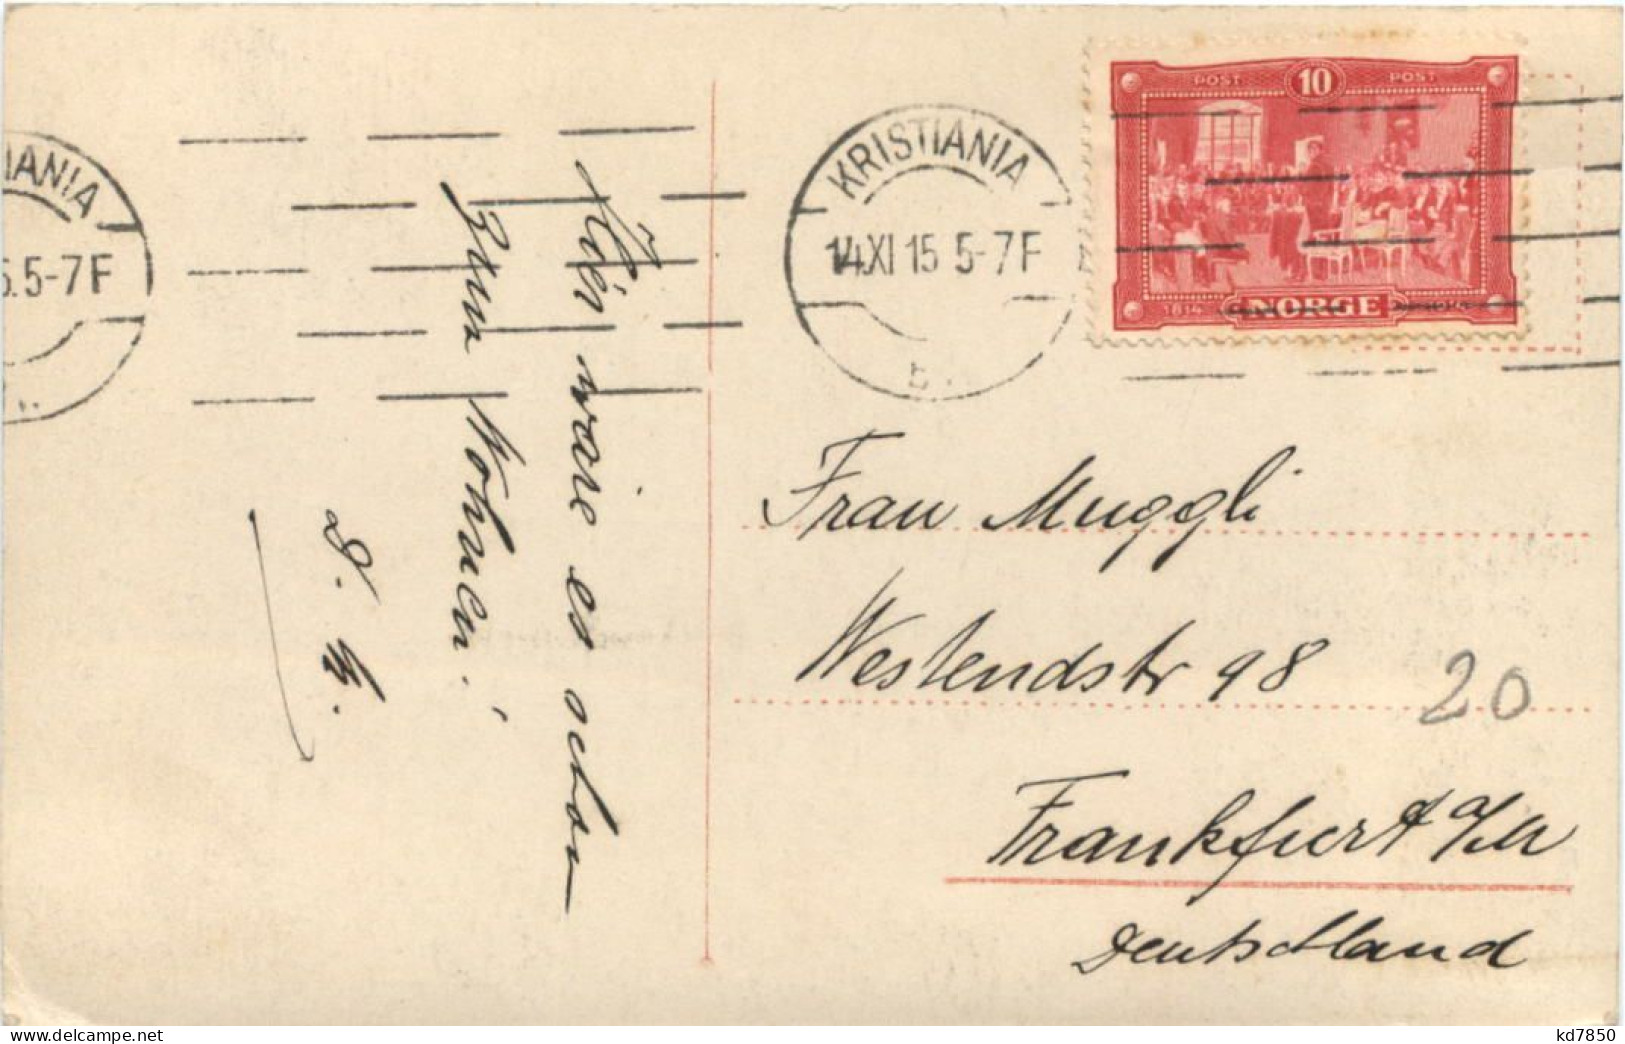 IANIA
5.5-7F
KRISTIANIA
14.XI 15 5-7F
POST 10 POST
1814 NORGE
Hier wäre es schon
zum Wohnen!
Frau Muggli
Westendstr 98
20
Frankfurt a/M
Deutschland
delcampe.net
kd7850